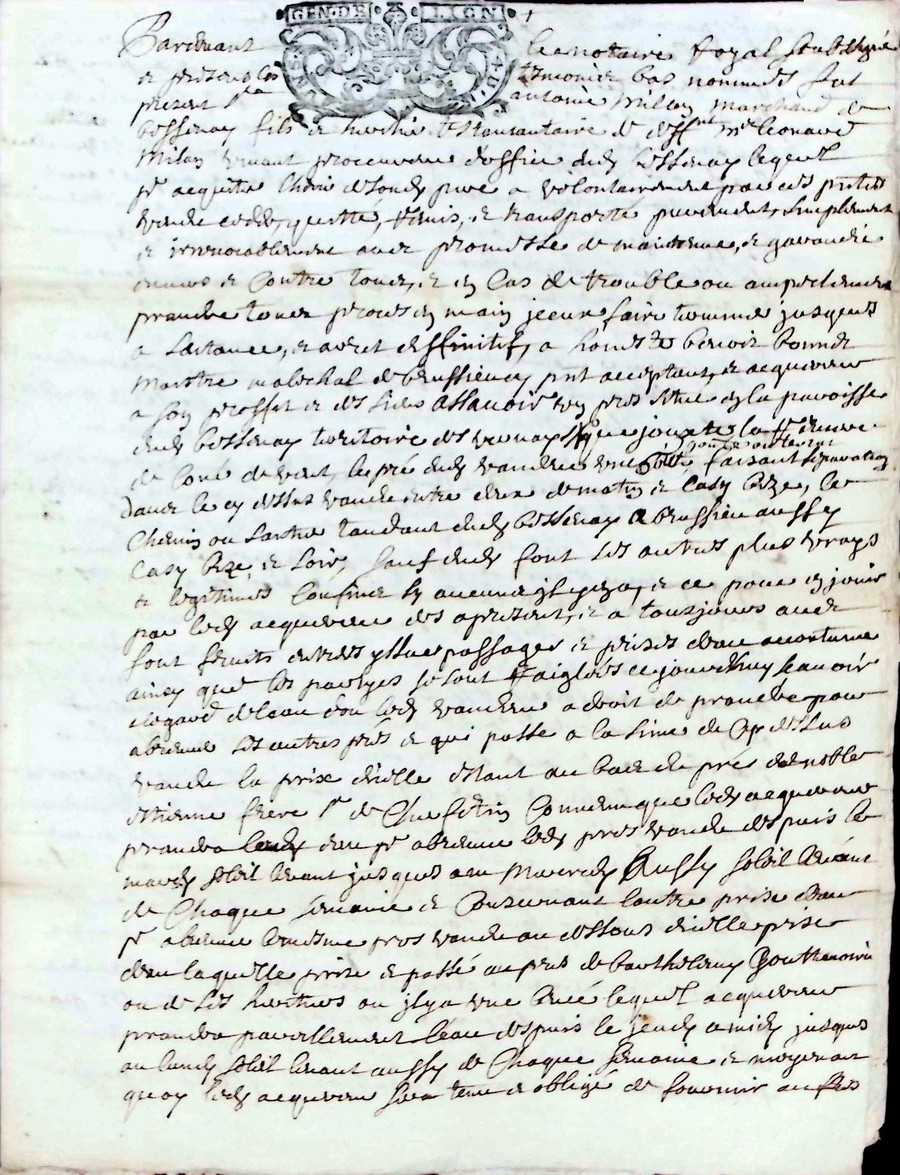 GEN·DE LION
Pardevant le notaire Royal soubsigné
et presens les tesmoins bas nommés fut
present Sr antoine milan marchand de
bessenay fils et heritier testamentaire de deffunt me leonard
milan vivant procureur d'office dudt bessenay lequel
pr acquitter chose et son dt pure a volontairement par ces pntes
vendu ceddé, quitté, remis, et transporté purement, simplement
et irrevocablement avec promesse de maintenue, et garandie
envers et contre tous, et en cas de trouble ou ampechement
prandre tous proces en main jceux faire terminer jusques
a santance, et arret deffinitif, a honeste benoist bonnet
maistre maréchal de brussieu pnt acceptant, et acquereur
a son proffit et des siens assavoir un pred situé en la parroisse
dudt bessenay territoire des vernay qui jouxte la terre
de de vent, le pré dudt vandeur une faisant separation
dance le cy dessus vandu entre deux de matin et casy bize, le
chemin ou sartre tandant dudt bessenay a brussieu aussy
casy bize et soir, sauf dudt font ses autres plus vrays
et legitimes confins sy aucuns jl y en a, et ce pour en jouir
par ledt acquereur des apresent, et a tousjours avec
font fruits entrées yssues passages et prises d'eau accoutumé
ainsy que les partyes se sont reiglées ce jourdhuy scavoir
a legard de leau dou ledt vandeur a droit de prandre pour
abreuver ses autres prés et qui passe a la sime de cy dessus
vandu la prise dicelle estant au bas du pré de noble
estienne frere sr de convenu que ledt acquereur
prandra leau pr abreuver ledt pred vandu despuis le
mardy soleil levant jusques au mercredy aussy soleil levant
de chaque semaine et concernant lautre prise deau
pr abreuver le mesme pred vandu au dessous dicelle prise
deau laquelle prise et passé au pred de barthelemy Gouttenoire
ou de ses heritiers ou jl y a une levée lequel acquereur
prandra pareillement leau despuis le jeudy a midy jusques
au lundy soleil levant aussy de chaque semaine et moyenant
quoy ledt acquereur sera tenu et obligé de fournir au